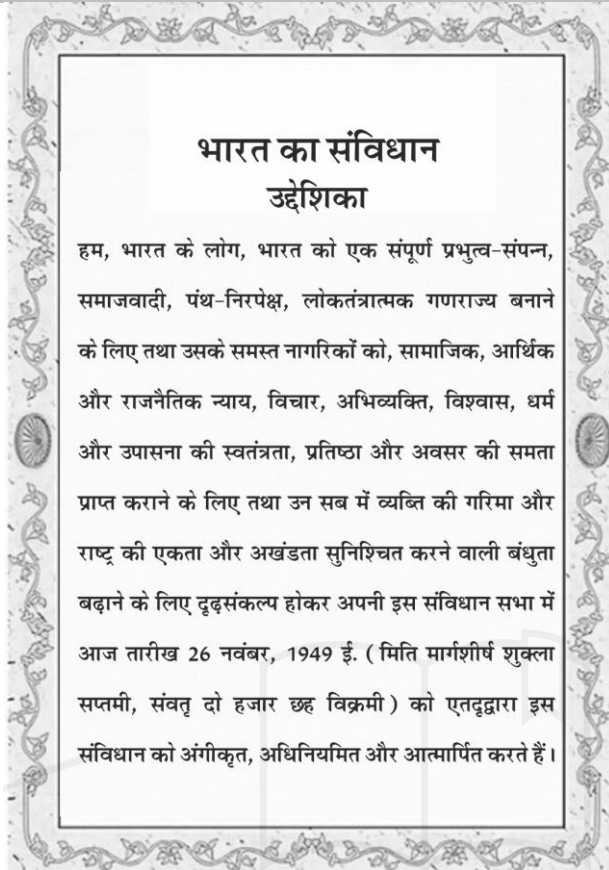 भारत का संविधान
उद्देशिका
हम, भारत के लोग, भारत को एक संपूर्ण प्रभुत्व-संपन्न,
समाजवादी, पंथ-निरपेक्ष, लोकतंत्रात्मक गणराज्य बनाने
के लिए तथा उसके समस्त नागरिकों को, सामाजिक, आर्थिक
और राजनैतिक न्याय, विचार, अभिव्यक्ति, विश्वास, धर्म
और उपासना की स्वतंत्रता, प्रतिष्ठा और अवसर की समता
प्राप्त कराने के लिए तथा उन सब में व्यक्ति की गरिमा और
राष्ट्र की एकता और अखंडता सुनिश्चित करने वाली बंधुता
बढ़ाने के लिए दृढ़संकल्प होकर अपनी इस संविधान सभा में
आज तारीख 26 नवंबर, 1949 ई. ( मिति मार्गशीर्ष शुक्ला
सप्तमी, संवतृ दो हजार छह विक्रमी ) को एतदृद्वारा इस
संविधान को अंगीकृत, अधिनियमित और आत्मार्पित करते हैं।